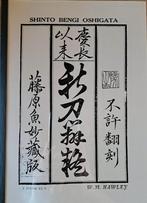 SHINTO BENGI OSHIGATA
慶長
以来
不許翻刻
新刀辨疑
藤原魚妙藏版
W. M. HAWLEY